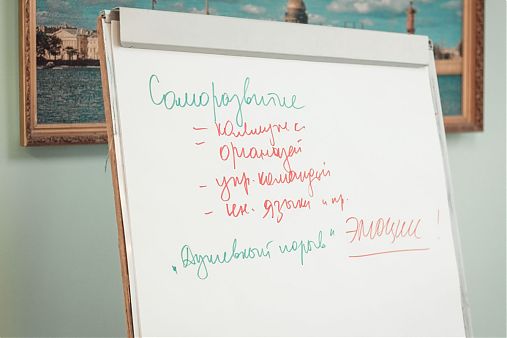 Саморазвитие
- коммуник.
- организ.
- упр. командой
- ин. языки и пр.
"Душевный порыв" ЭМОЦИИ!